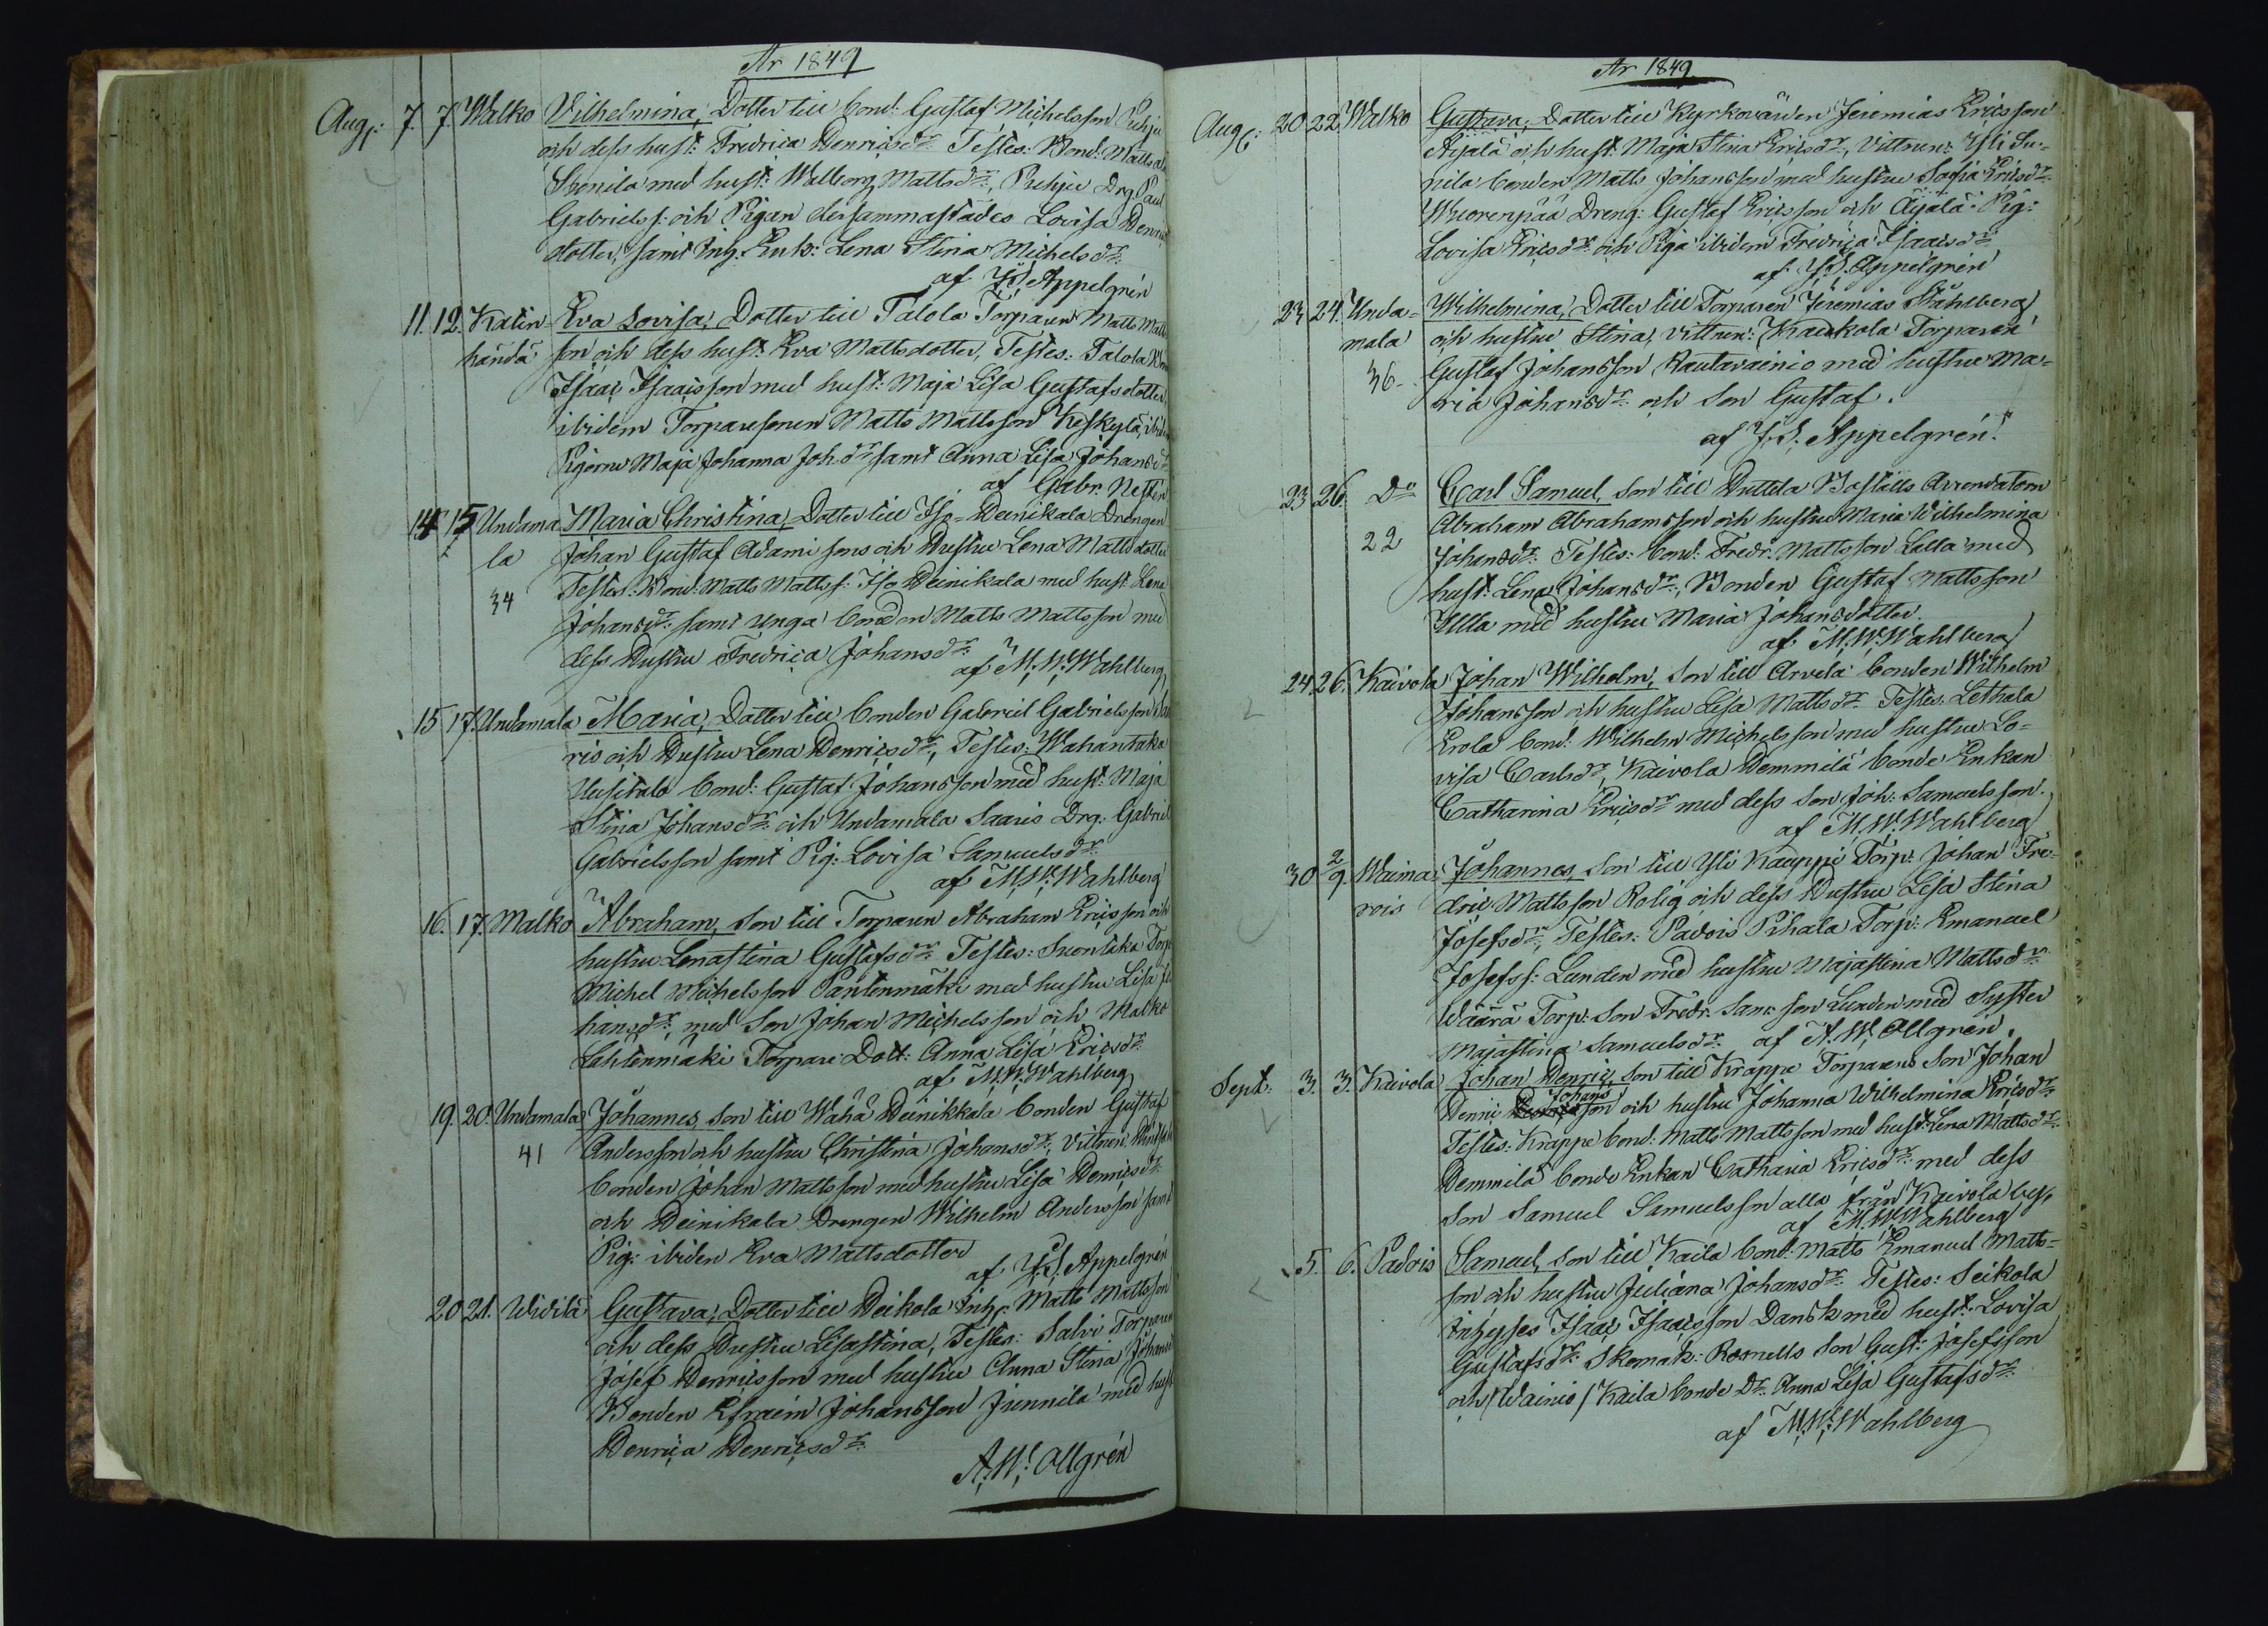 År 1849
Aug: 7. 7. Walko Vilhelmina, Dotter till bond: Gustaf Michelsson
och dess hust: Fredrica Henricsdr. Testes: Bond: Matts
med hust: Walborg Mattsdr, Puhju Drg Paul
Gabrielss: och Pigan dersammastädes Lovisa Henrics
dotter, samt Ing. Enk: Lena Stina Michelsdr.
af J.S. Appelgrén
11. 12. Katin Eva Lovisa, Dotter till Talola Torparen Matts Matts
händä son och dess hust: Eva Mattsdotter, Testes: Talola
Isaac Isaacsson med hust: Maja Lisa Gustafsdotter,
ibidem Torparesonen Matts Mattsson Keskylä,
Pigorne Maja Johanna Joh.dr samt Anna Lisa Johansdr
af Gabr. Nestén
14 15 Undama Maria Christina, Dotter till Iso=Heinikala Drengen
la Johan Gustaf Adamisons och Hustru Lena Mattsdotter
34 Testes: Bond: Matts Mattss: Iso Heinikala med hust: Lena
Johansdr: samt unga bonden Matts Mattsson med
dess Hustru Fredrica Johansdr.
af M.W. Wahlberg
15 17. Undamala Maria, Dotter till bonden Gabriel Gabrielsson
ris och Hustru Lena Henricsdr, Testes: Wahantaka
Uusitalo bond: Gustaf Johansson med hust: Maja
Stina Johansdr: och Undamala Saaris Drg: Gabriel
Gabrielsson samt Pig: Lovisa Samuelsdr.
af M.W. Wahlberg
16. 17. Malko Abraham, son till Torparen Abraham Ericsson och
hustru Lenastina Gustafsdr. Testes: Suontaka Torp
Michel Michelsson Pantenmäki med hustru Lisa Jo
hansdr, med son Johan Michelsson och Malko
Lahtenmäki Torpare Dott: Anna Lisa Ericsdr.
af M.W. Wahlberg
19. 20. Undamala Johannes, son till Wähä Heinikkala bonden Gustaf
41 Andersson och hustru Christina Johansdr, Vittnen:
bonden Johan Mattsson med hustru Lisa Henricsdr
och Heinikala Drengen Wilhelm Andersson samt
Pig: ibidem Eva Mattsdotter
af J.S. Appelgrén
20 21. Widilä Gustava, Dotter till Heikola Inhs: Matts Mattsson
och dess Hustru Lisastina, Testes: Salvi Torparen
Josef Henricsson med hustru Anna Stina
Bonden Efraim Johansson Junnila med hust
Henrica Henricsdr.
A.W. Allgrén
År 1849
Aug: 20 22. Walko Gustava, Dotter till Kyrkovärden Jeremias Ericsson
Äijälä och hust: Maja Stina Ericsdr, Vittnen: Yli Su=
nila bonden Matts Johansson med hustru Sofia Ericsdr
Wuorenpää Dreng: Gustaf Ericsson och Äijälä Pig:
Lovisa Ericsdr och Piga ibidem Fredrica Isaacsdr
af J.S. Appelgrén
23 24. Unda= Wilhelmina, Dotter till Torparen Jeremias Ståhlberg
mala och hustru Stina, Vittnen: Kaukola Torparen
36. Gustaf Johansson Rautavainio med hustru Ma=
ria Johansdr och son Gustaf.
af J.S. Appelgrén.
23 26. Do Carl Samuel, son till Huttela Boställs Arrendatorn
Abraham Abrahamsson och hustru Maria Wilhelmina
22 Johansdr: Testes: bond: Fredr. Mattsson Lalla med
hust: Lena Johansdr, Bonden Gustaf Mattsson
Ylla med hustru Maria Johansdotter.
af M.W. Wahlberg
24 26. Kaivola Johan Wilhelm, son till Arvela bonden Wilhelm
Johansson och hustru Lisa Mattsdr. Testes: Lethala
Erola bond: Wilhelm Michelsson med hustru Lo=
visa Carlsdr, Kaivola Hemmilä bonde Enkan
Catharina Ericsdr med dess son Joh: Samuelsson.
af M.W. Wahlberg
30 2/9. Waima= Johannes, son till Yli Kauppi Torp: Johan Fre=
rois dric Mattsson Rolig och dess Hustru Lisa Stina
Josefsdr, Testes: Padois Pihala Torp: Emanuel
Josefss: Lunden med hustru Majastina Mattsdr
Wäärä Torp: son Fredr: Sam:son Lunden med Syster
Majastina Samuelsdr. af A.W. Allgrén.
Sept: 3. 3. Kaivola Johan Henric, son till Krappe Torparens son Johan
Henric Johansson och hustru Johanna Wilhelmina Ericsdr.
Testes: Krappe bond: Matts Mattsson med hust: Lena Mattsdr.
Hemmilä bonde Enkan Catharia Ericsdr. med dess
son Samuel Samuelsson alla från Kaivola by,
af M.W. Wahlberg
5. 6. Padois Samuel, son till Kaila bond: Matts Emanuel Matts=
son och hustru Juliana Johansdr. Testes: Seikola
Inhyses Isaac Isaacsson Dansk med hust: Lovisa
Gustafsdr: Skomak: Rosnells son Gust: Josefsson
och /Wainio/ Kaila bonde Dr. Anna Lisa Gustafsdr.
af M.W. Wahlberg